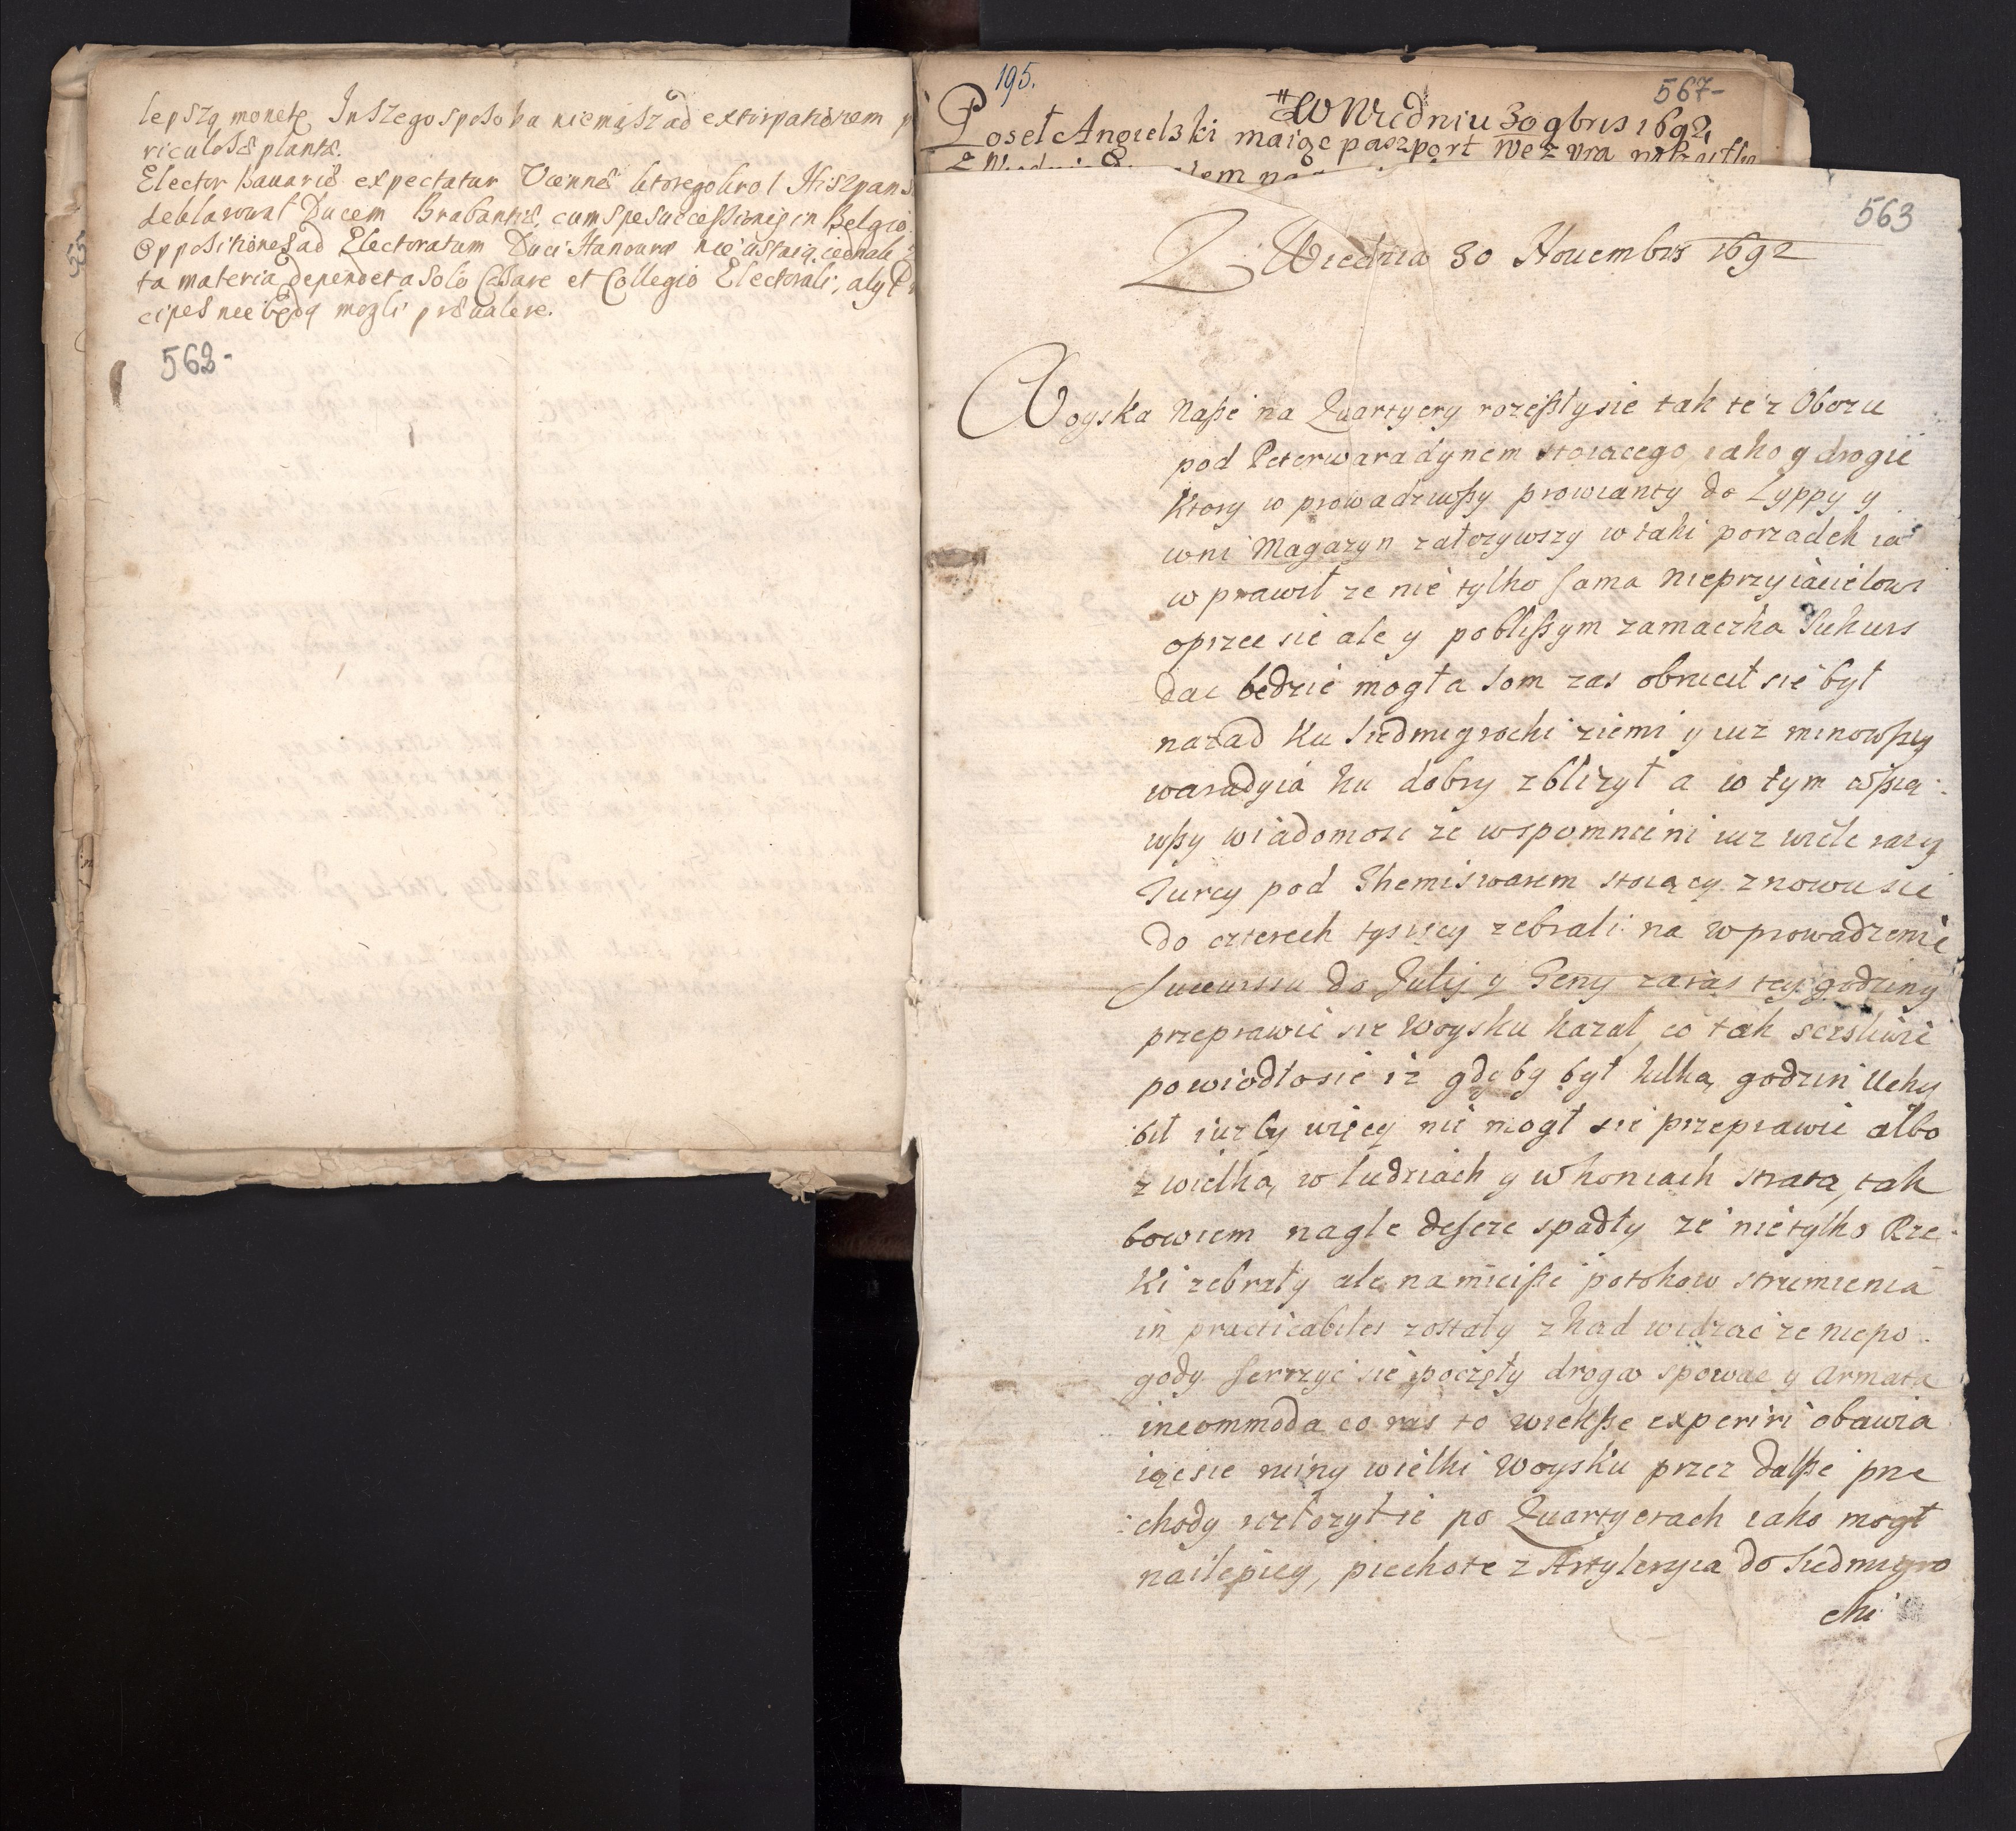 lepszą monetę Inszego sposobu niemasz ad extirpationem
riculosæ plantæ.
Elector Bauariæ expectatur Viennæ ktorego krol Hiszpans
deklarowal Ducem Brabantiæ, cum spe successionis in Belgio.
Oppositiones ad Electoratum Duci Hanouræ nie ustaią, iednak
ta materia dependet a solo Cæsare et Collegio Electorali, aly
cipes nie będą mogli præualere.
562-
195.
567-
W Wiedniu 30 9bris 1692
Poseł Angielski maiąc paszport Wezyra
563
Z Wiednia 30 Nouembris 1692
Woyska Naße na Quartyery rozeßły sie tak te z Obozu
pod Peterwaradynem stoiacego iako y drogie
Ktory w prowadziwßy prowianty do Lyppy y
w ni Magazyn załozywszy w taki porzadek ia
w prawił ze nie tylko sama Nieprzyiacielowi
oprze sie ale y poblißym zamaczka Sukurs
dac będzie mogła som zas obrucił sie był
nazad Ku Siedmigrochi ziemi y iuz minowßy
waradyia ku dobry zblizył a w tym wßią
wßy wiadomosc ze wspomnieni iuz wiele razy
Turcy pod Themiswarem stoiący znowu sie
do czterech tysięcy zebrali na wprowadzenie
Succurssu do Julij y Geny zaras tey godziny
przeprawic sie Woysku kazał, co tak scesliwie
powiodło sie iz gdyby był kilka, godzin Uchy
bił iuz by więcy nie mogł sie przeprawic albo
z wielka, w ludziach y w koniach strata, tak
bowiem nagle desere spadły ze nie tylko Rze
ki zebrały ale na mieiße potokow strumienia
in practicabiles zostały zkad widzac ze niepo
gody serzyc sie poczęły droga spowac y Armata
incommoda co ras to wiekße experiri obawia
iąc sie ruiny wielki Woysku przez dalße prze
chody rozłozył ie po Quartyerach iako mogł
nailepiey, piechote z Artyleryia do Siedmigro
chi